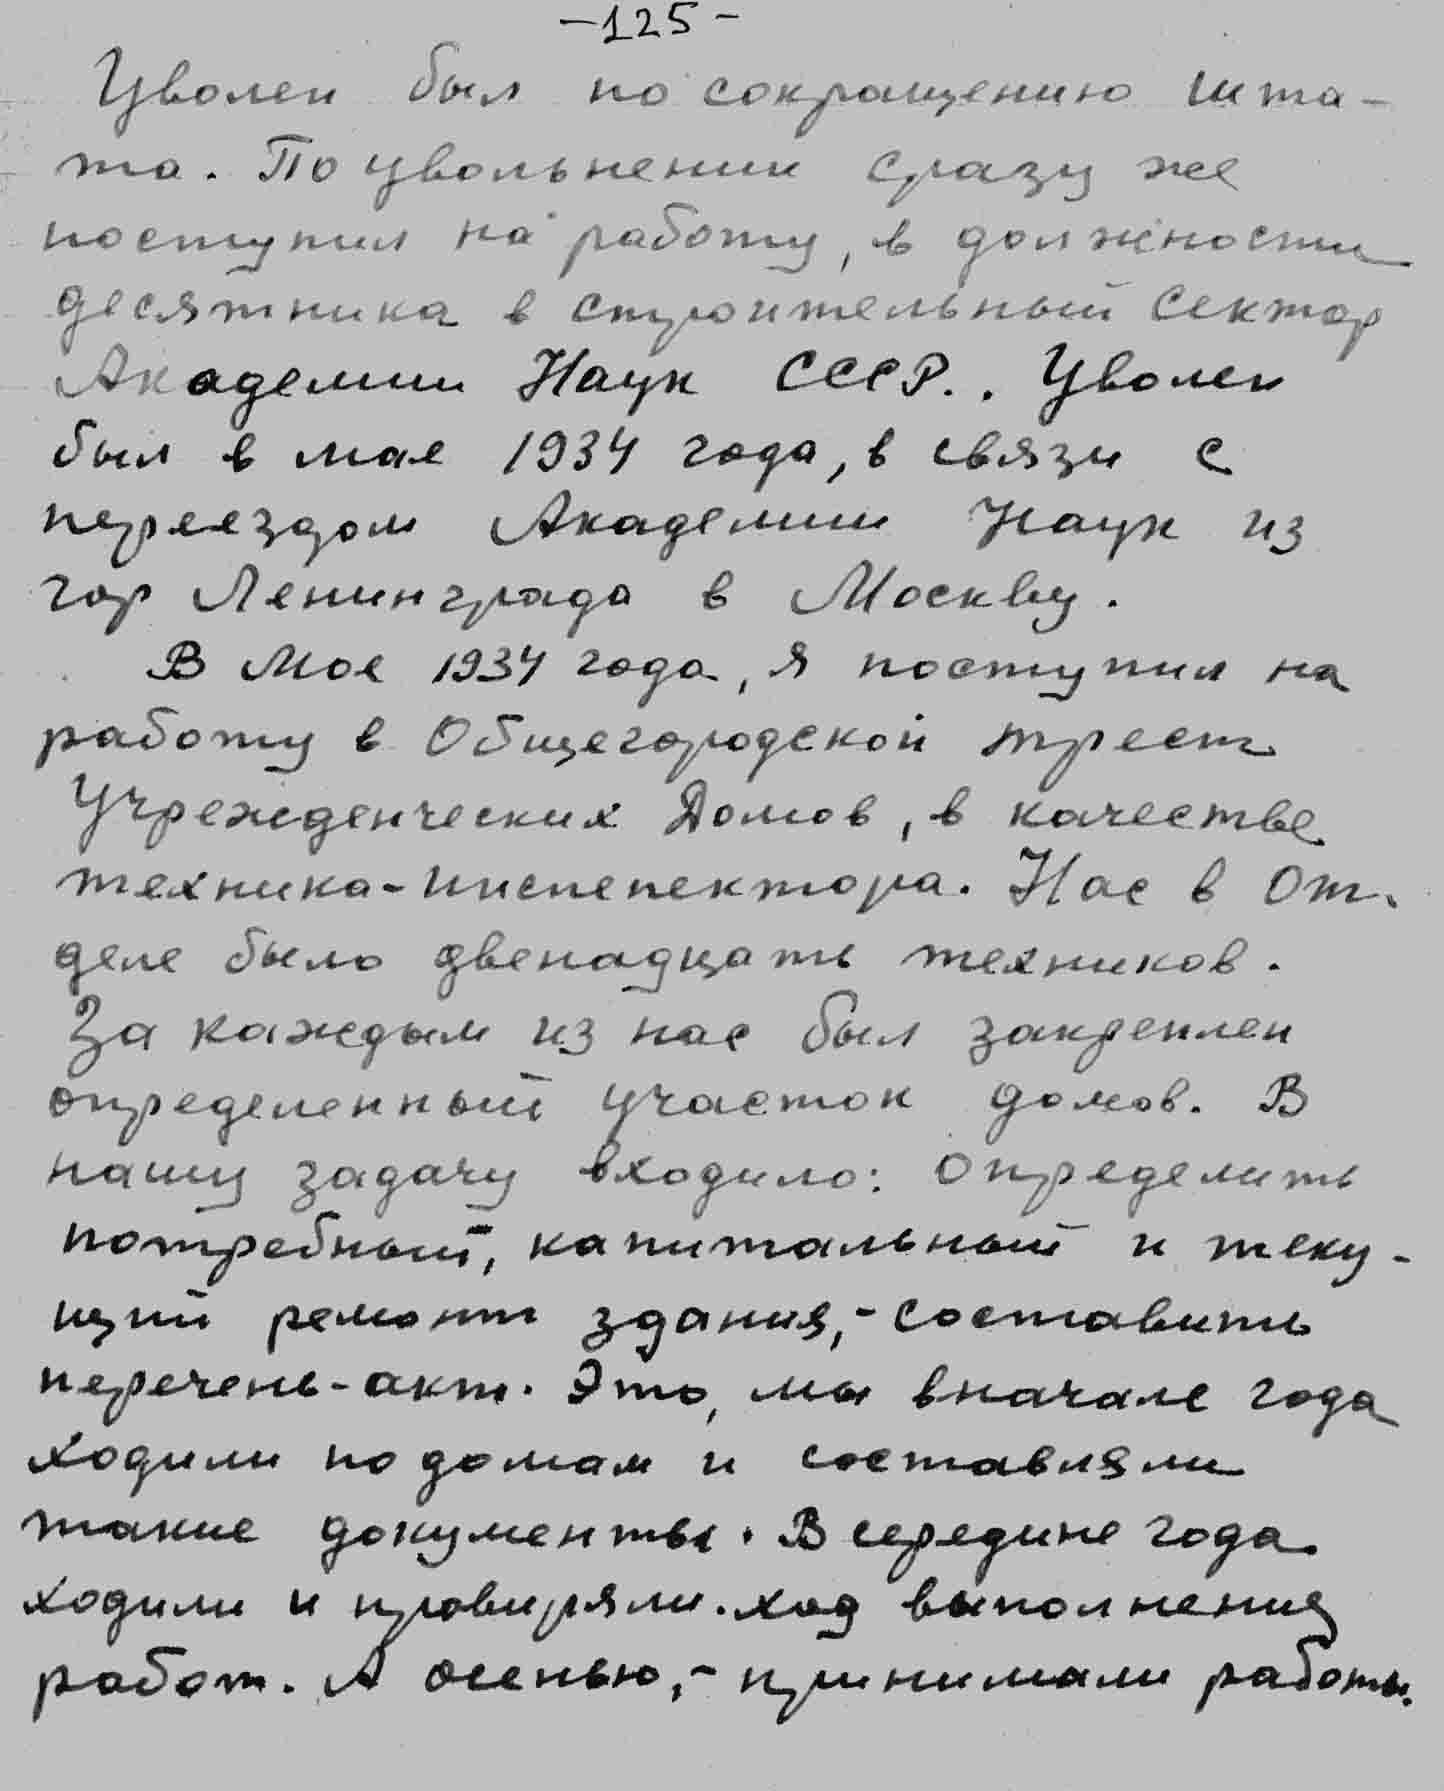 -125-
Уволен был по сокращению шта-
та. По увольнении сразу же
поступил на работу, в должности
десятника в строительный сектор
Академии Наук СССР.. Уволен
был в мае 1934 года, в связи с
переездом Академии Наук из
гор Ленинграда в Москву.
В Мае 1934 года, я поступил на
работу в Общегородской трест
Учрежденческих Домов, в качестве
техника-инспепектора. Нас в От.
деле было двенадцать техников.
За каждым из нас был закреплен
определенный участок домов. В
нашу задачу входило: определить
потребный, капитальный и теку-
щий ремонт здания,- составить
перечень-акт. Это, мы вначале года
ходили по домам и составляли
такие документы. В середине года
ходили и провиряли. ход выполнения
работ. А осенью,- принимали работы.